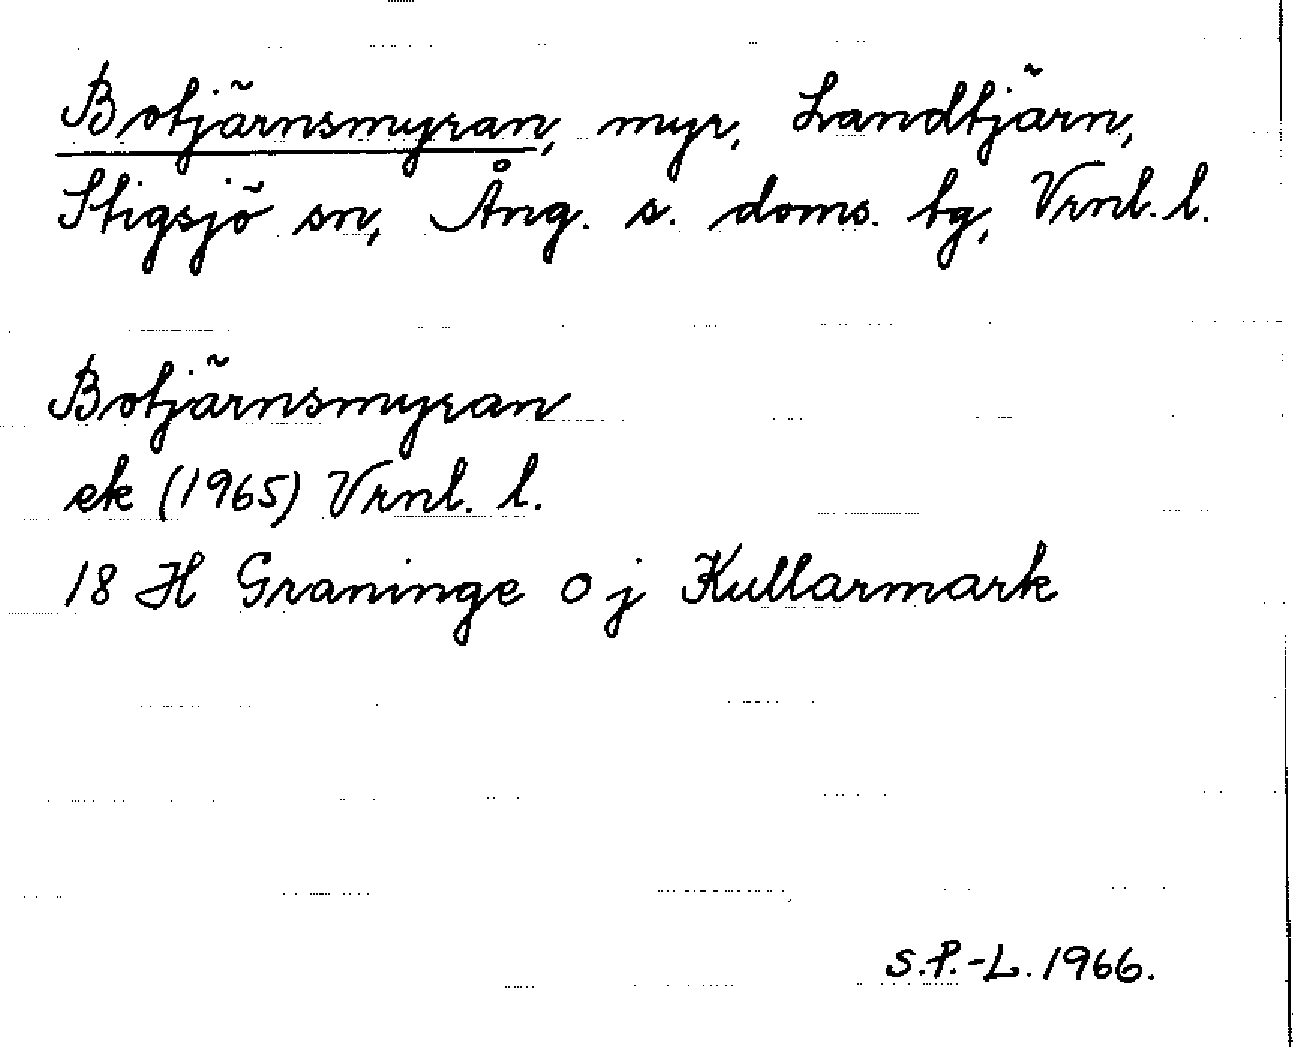 Botjärnsmyran, myr, Landtjärn,
Stigsjö sn, Ång. s. doms. tg, Vrnl. l.
Botjärnsmyran
ek (1965) Vrnl. l.
18 H Graninge 0 j Kullarmark
S.P.-L. 1966.